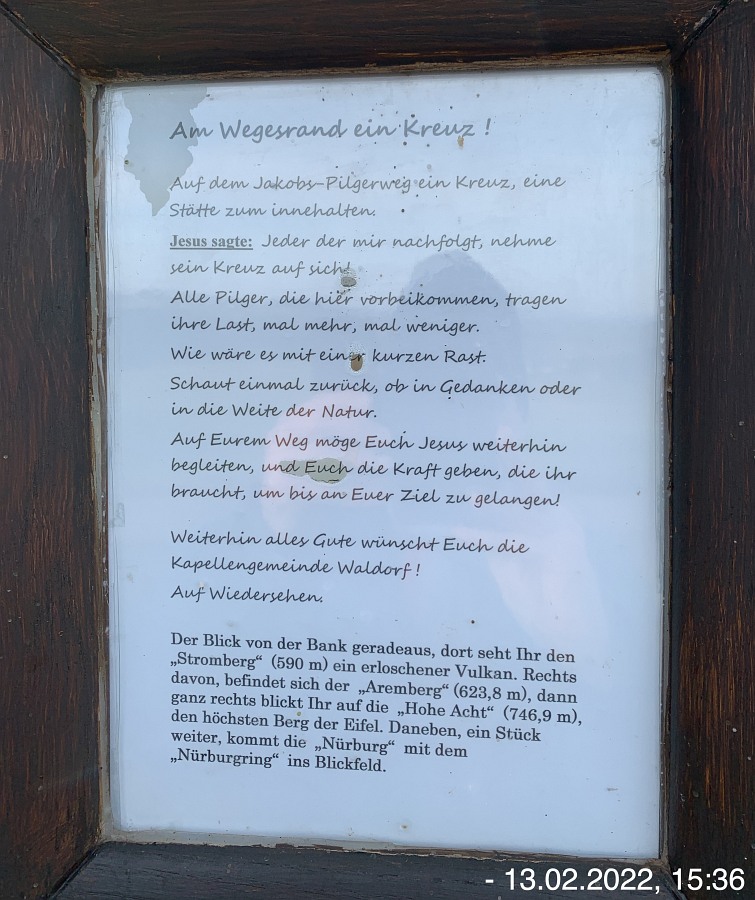 Am Wegesrand ein Kreuz !
Auf dem Jakobs-Pilgerweg ein Kreuz, eine
Stätte zum innehalten.
Jesus sagte: Jeder der mir nachfolgt, nehme
sein Kreuz auf sich!
Alle Pilger, die hier vorbeikommen, tragen
ihre Last, mal mehr, mal weniger.
Wie wäre es mit einer kurzen Rast.
Schaut einmal zurück, ob in Gedanken oder
in die Weite der Natur.
Auf Eurem Weg möge Euch Jesus weiterhin
begleiten, und Euch die Kraft geben, die ihr
braucht, um bis an Euer Ziel zu gelangen!
Weiterhin alles Gute wünscht Euch die
Kapellengemeinde Waldorf !
Auf Wiedersehen.
Der Blick von der Bank geradeaus, dort seht Ihr den
„Stromberg“ (590 m) ein erloschener Vulkan. Rechts
davon, befindet sich der „Aremberg“ (623,8 m), dann
ganz rechts blickt Ihr auf die „Hohe Acht“ (746,9 m),
den höchsten Berg der Eifel. Daneben, ein Stück
weiter, kommt die „Nürburg“ mit dem
„Nürburgring“ ins Blickfeld.
- 13.02.2022, 15:36